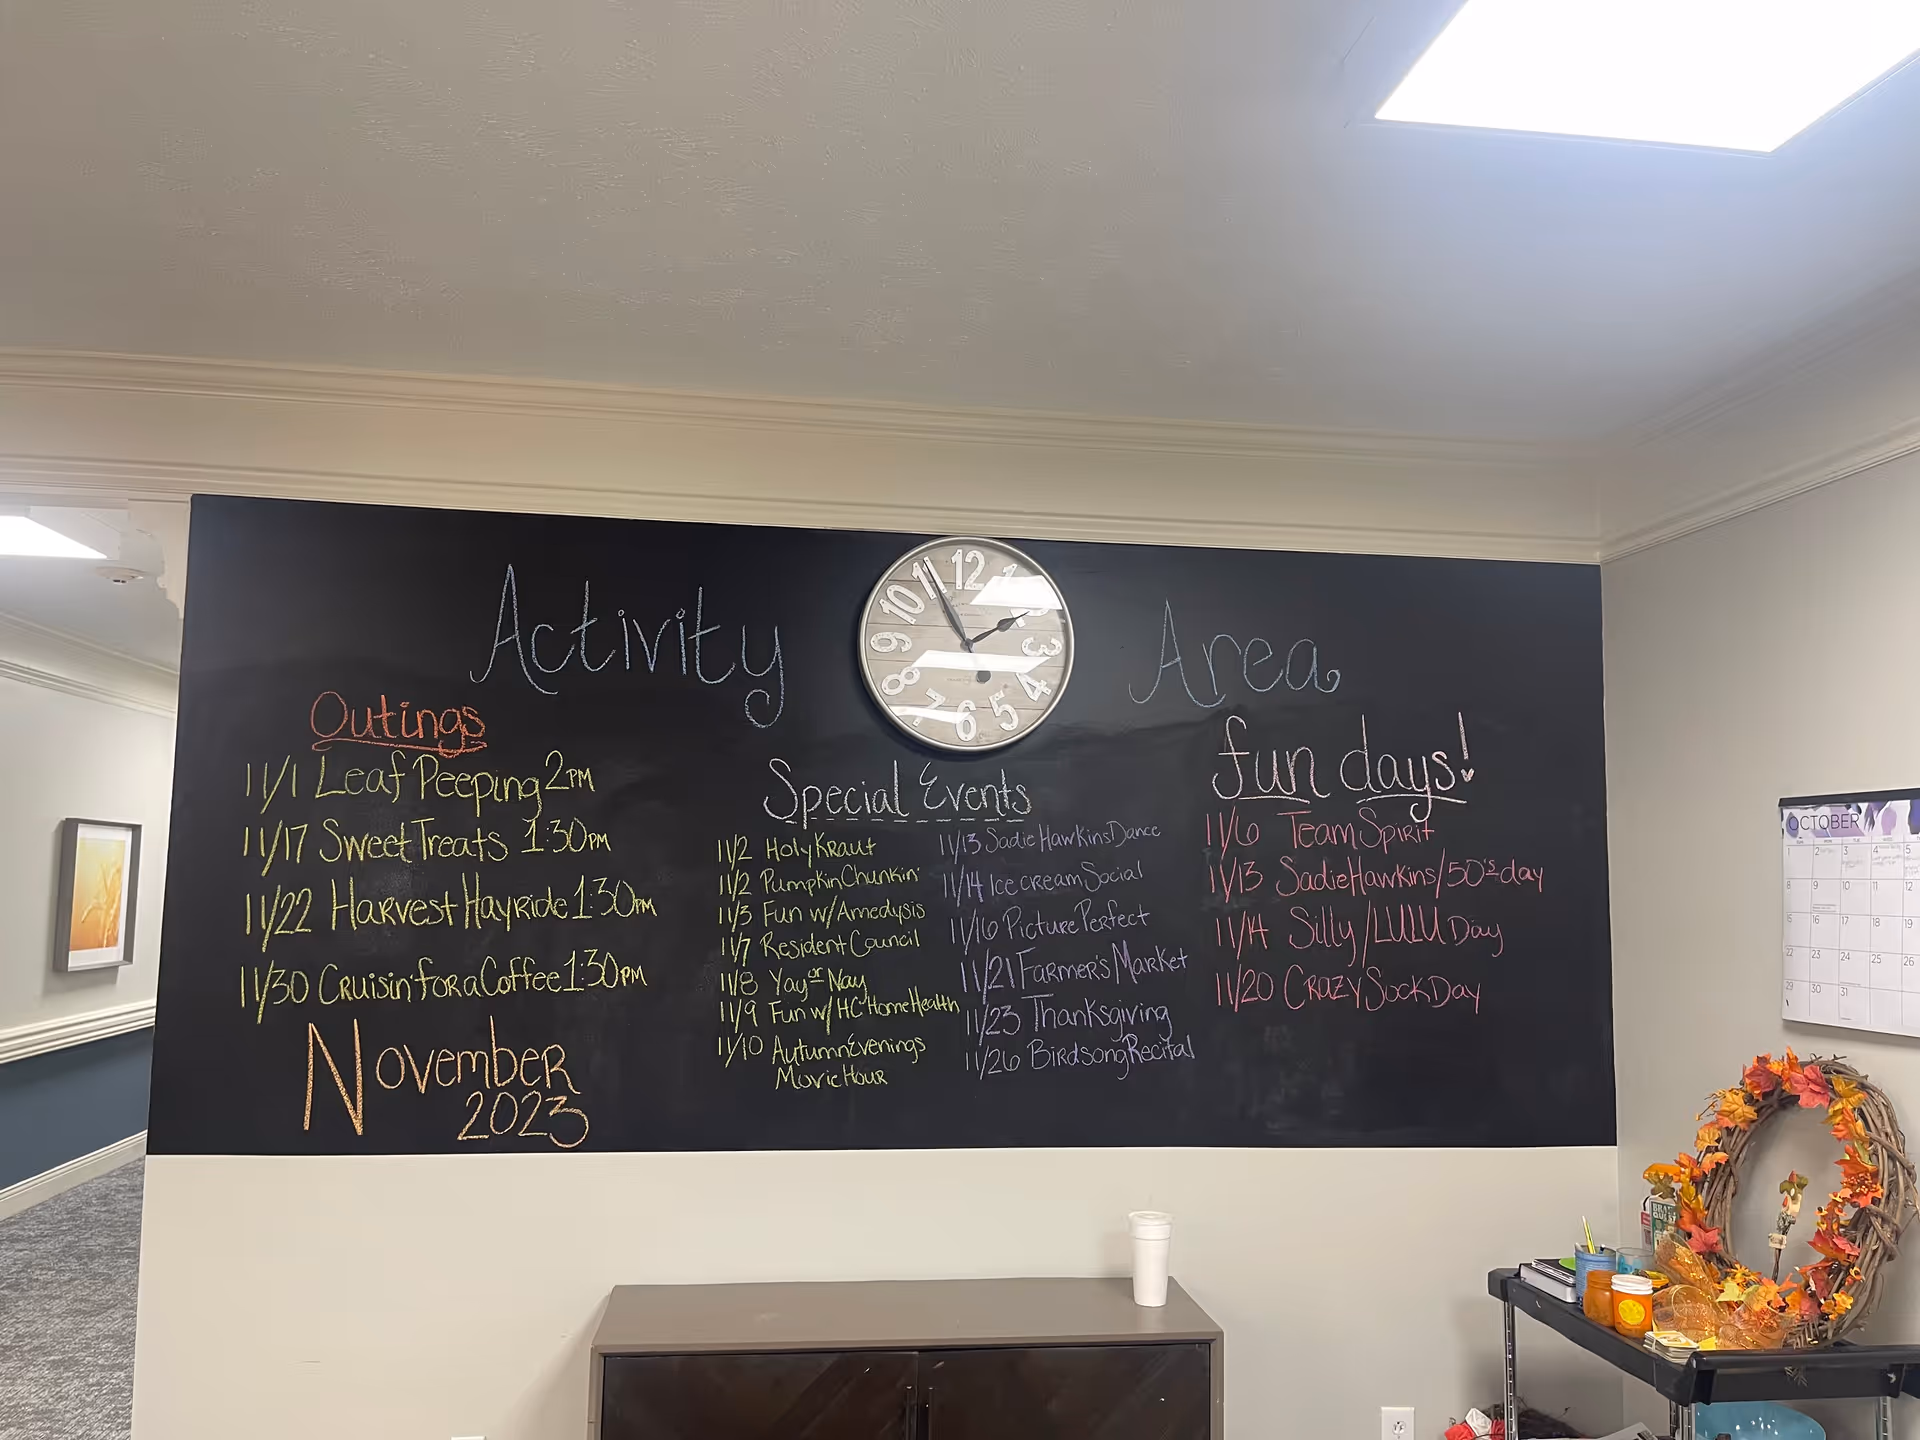 Activity
Area
Outings
11/1 Leaf Peeping 2PM
11/17 Sweet Treats 1:30PM
11/22 Harvest Hayride 1:30PM
11/30 Cruisin' for a Coffee 1:30PM
November
2023
Special Events
11/2 Holy Kraut
11/2 Pumpkin Chunkin'
11/3 Fun w/Amedysis
11/7 Resident Council
11/8 Yay or Nay
11/9 Fun w/ HC Home Health
11/10 Autumn Evenings
Movie Hour
11/13 Sadie Hawkins Dance
11/14 Ice cream Social
11/16 Picture Perfect
11/21 Farmer's Market
11/23 Thanksgiving
11/26 Birdsong Recital
fun days!
11/6 Team Spirit
11/13 Sadie Hawkins/50's day
11/14 Silly/LULU Day
11/20 Crazy Sock Day
12
1
2
3
4
5
6
7
8
9
10
11
OCTOBER
1 2 3 4 5
8 9 10 11 12
15 16 17 18 19
22 23 24 25 26
29 30 31